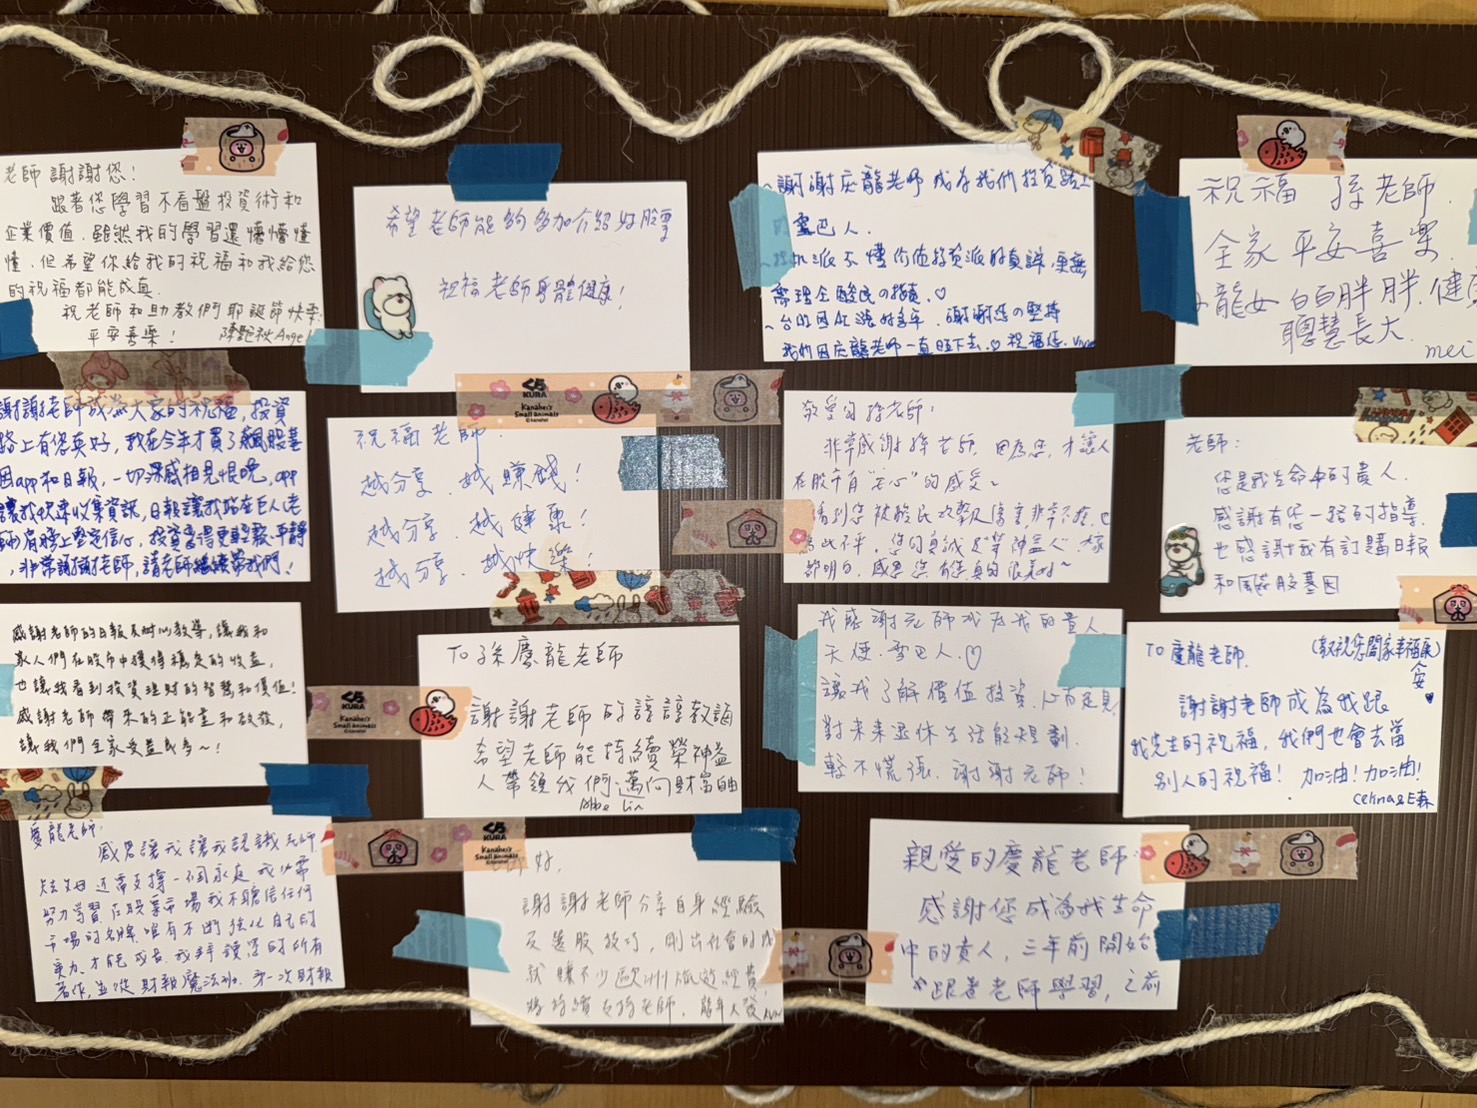 老師謝謝您！
跟著您學習不看盤投資術和
企業價值．雖然我的學習還懵懵懂
懂．但希望你給我的祝福和我給您
的祝福都能成真．
祝老師和助教們耶誕節快樂
平安喜樂！
希望老師能夠多加介紹好股票
祝福老師身體健康！
～謝謝慶龍老師成為我們投資路上
的靈巴人．
不懂價值投資派的真諦，更無
需理会酸民の指責．♡
謝謝您の堅持
我們因慶龍老師一直旺下去．♡祝福您．
祝福 孫老師．
全家平安喜樂．
小龍女白白胖胖．健康
聰慧長大．
mei
謝謝老師成為大家的祝福，投資
路上有您真好，我在今年才買了飆股基
因app和日報，一切深感相見恨晚，app
讓我快速收集資訊，日報讓我站在巨人（老
師）肩膀上堅定信心，投資變得更輕鬆、平靜
，非常謝謝老師，請老師繼續帶我們！
祝福老師．
越分享．越賺錢！
越分享．越健康！
越分享．越快樂！
敬愛的孫老師：
非常感謝孫老師，因為您，才讓人
在股市有"安心"的感受～
看到您被酸民攻擊
為此不平，您的真誠是"榮神益人"，大家
都明白，感恩您 有您真的很美好～
老師：
您是我生命中的貴人．
感謝有您一路的指導，
也感謝我有訂購日報
和飆股基因
感謝老師的日報及財報教導，讓我和
家人們在股市中獲得穩定的收益，
也讓我看到投資理財的智慧和價值！
感謝老師帶來的正能量和啟發，
讓我們全家受益良多～！
To 孫慶龍老師
謝謝老師的諄諄教誨
希望老師能持續榮神益
人帶領我們邁向財富自由
Abbe Lin
我感謝老師成為我的貴人
天使．靈巴人．♡
讓我了解價值投資．
對未來退休生活能規劃．
輕不慌張．謝謝老師！
To 慶龍老師．
（敬祝您闔家幸福康）
安
謝謝老師成為我跟
我先生的祝福，我們也會去當
別人的祝福！ 加油！加油！
Celina&E森
慶龍老師：
感恩讓我讓我認識老師
還需支撐一個家庭 我必需
努力學習 在股票市場我不聽信任何
市場的名牌 唯有不斷強化自己的
實力 才能成長．我拜讀您的所有
著作，並從財報魔法 第一次財報
好，
謝謝老師分享自身經驗
及選股技巧，剛出社會的我
就賺不少歐洲旅遊經費，
將持續支持老師，龍年大發
親愛的慶龍老師：
感謝您成為我生命
中的貴人，三年前開始
跟著老師學習，之前
くら
KURA
Kanahei's
Small animals
©kanahei
くら
KURA
Kanahei's
Small animals
©kanahei
くら
KURA
Kanahei's
Small animals
©kanahei